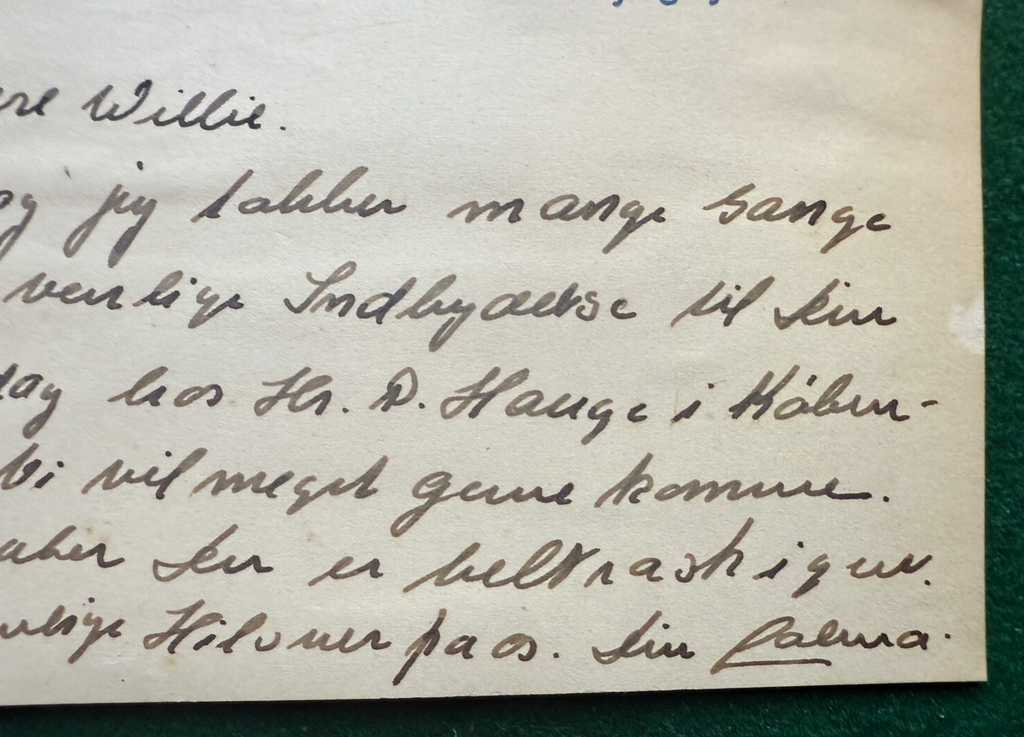 ere Willie.
og jeg takker mange Gange
venlige Indbydelse til Din
dag hos Hr. P. Hauge i Köben-
Vi vil meget gerne komme.
aaber Du er helt rask igen.
nlige Hilsner fra os. Din